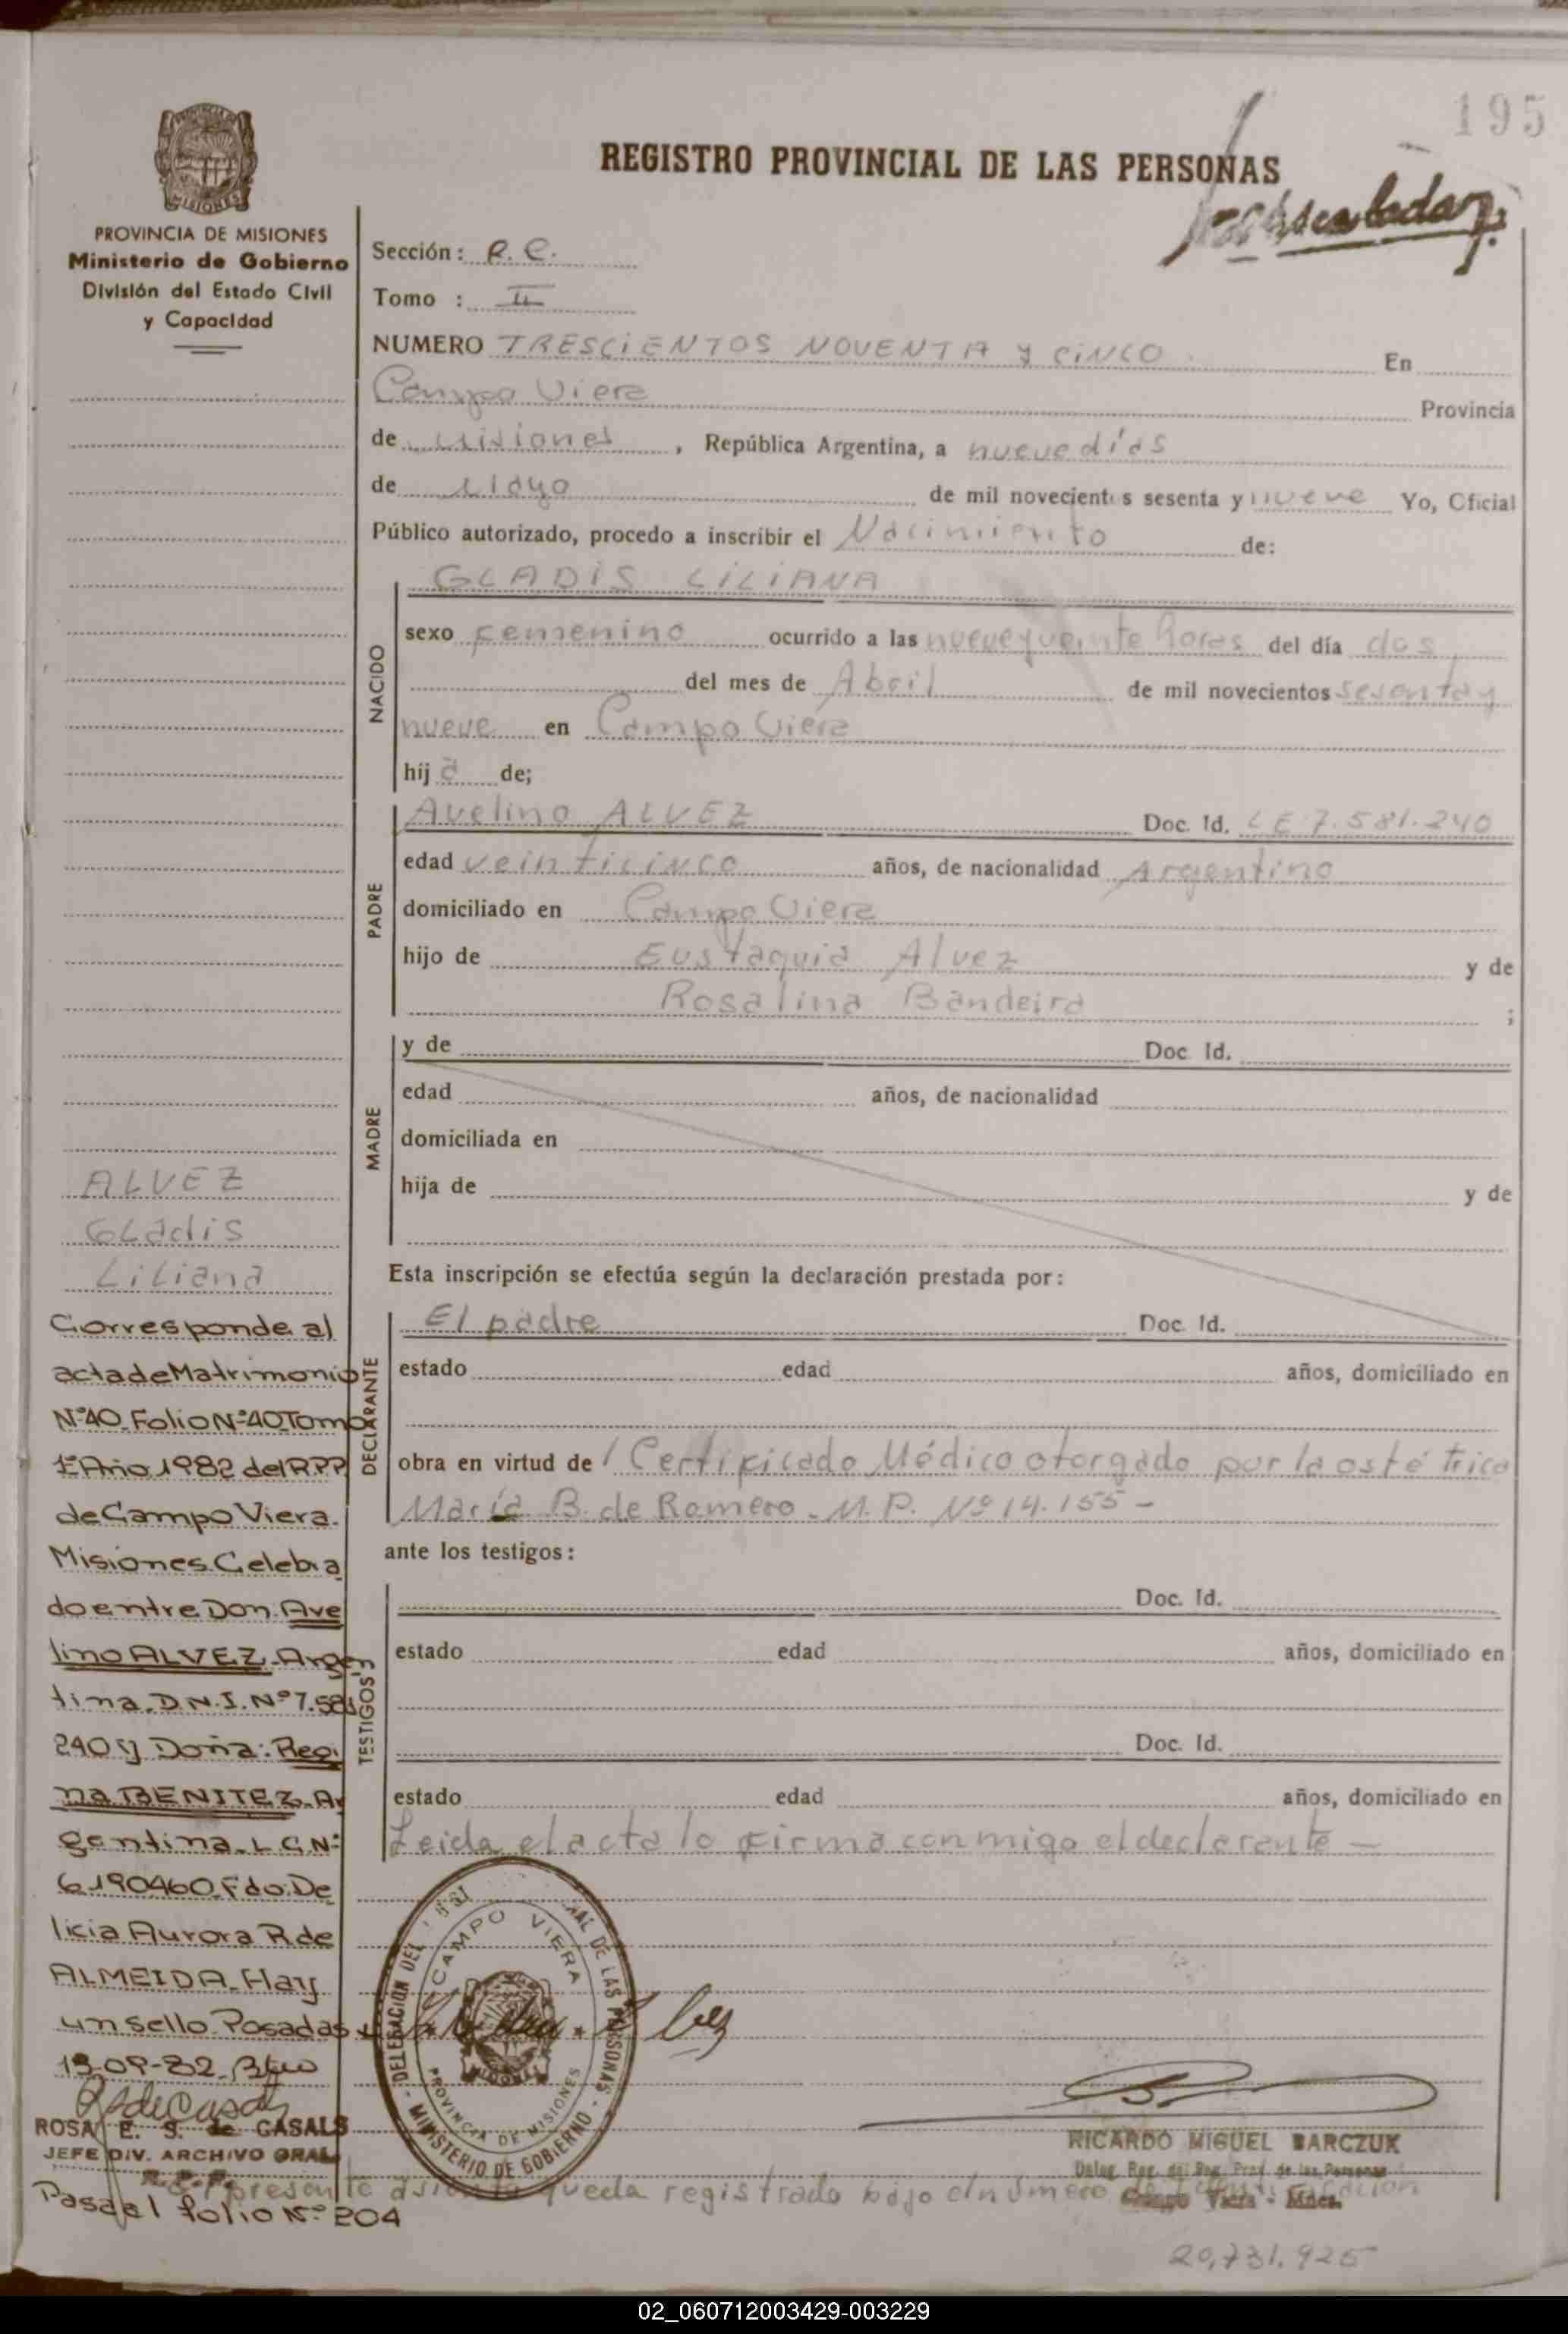 195
REGISTRO PROVINCIAL DE LAS PERSONAS
PROVINCIA DE MISIONES
Ministerio de Gobierno
División del Estado Civil
y Capacidad
Sección: R. C.
Tomo : II
NUMERO TRESCIENTOS NOVENTA y CINCO En
Campo Viera Provincia
de Misiones, República Argentina, a nueve días
de Mayo de mil novecientos sesenta y nueve Yo, Oficial
Público autorizado, procedo a inscribir el Nacimiento de:
NACIDO
GLADIS LILIANA
sexo femenino ocurrido a las nueve y veinte horas del día dos
del mes de Abril de mil novecientos sesenta y
nueve en Campo Viera
hij a de;
PADRE
Avelino ALVEZ Doc. Id. LE 7.581.240
edad veinticinco años, de nacionalidad Argentino
domiciliado en Campo Viera
hijo de Eustaquia Alvez y de
Rosalina Bandeira ;
MADRE
y de Doc. Id.
edad años, de nacionalidad
domiciliada en
hija de y de
Esta inscripción se efectúa según la declaración prestada por:
DECLARANTE
El padre Doc. Id.
estado edad años, domiciliado en
obra en virtud de / Certificado Médico otorgado por la ostétrica
María B. de Romero - M. P. Nº 14.155 -
ante los testigos:
TESTIGOS
Doc. Id.
estado edad años, domiciliado en
Doc. Id.
estado edad años, domiciliado en
Leida el acta lo firma conmigo el declarante -
DELEGACION DEL PROVINCIAL DE LAS PERSONAS - MINISTERIO DE GOBIERNO -
CAMPO VIERA
PROVINCIA DE MISIONES
RICARDO MIGUEL BARCZUK
Deleg. Reg. del Reg. Prov. de las Personas
Campo Viera - Mnes.
presente asiento queda registrado bajo el número de identificación
20,731.925
ALVEZ
Gladis
Liliana
Corresponde al
acta de Matrimonio
Nº 40 Folio Nº 40 Tomo
1º Año 1982 del R.P.P
de Campo Viera.
Misiones. Celebra
do entre Don. Ave
lino ALVEZ - Argen
tina. D.N.I. Nº 7.581
240 y Doña: Regi
na BENITEZ - Ar
gentina - L.C. Nº
6190460. Fdo. De
licia Aurora R. de
ALMEIDA - Hay
un sello Posadas
13-09-82.
ROSA E. S. de CASALS
JEFE DIV. ARCHIVO GRAL
R. P. P.
Pasa al folio Nº 204
02_060712003429-003229